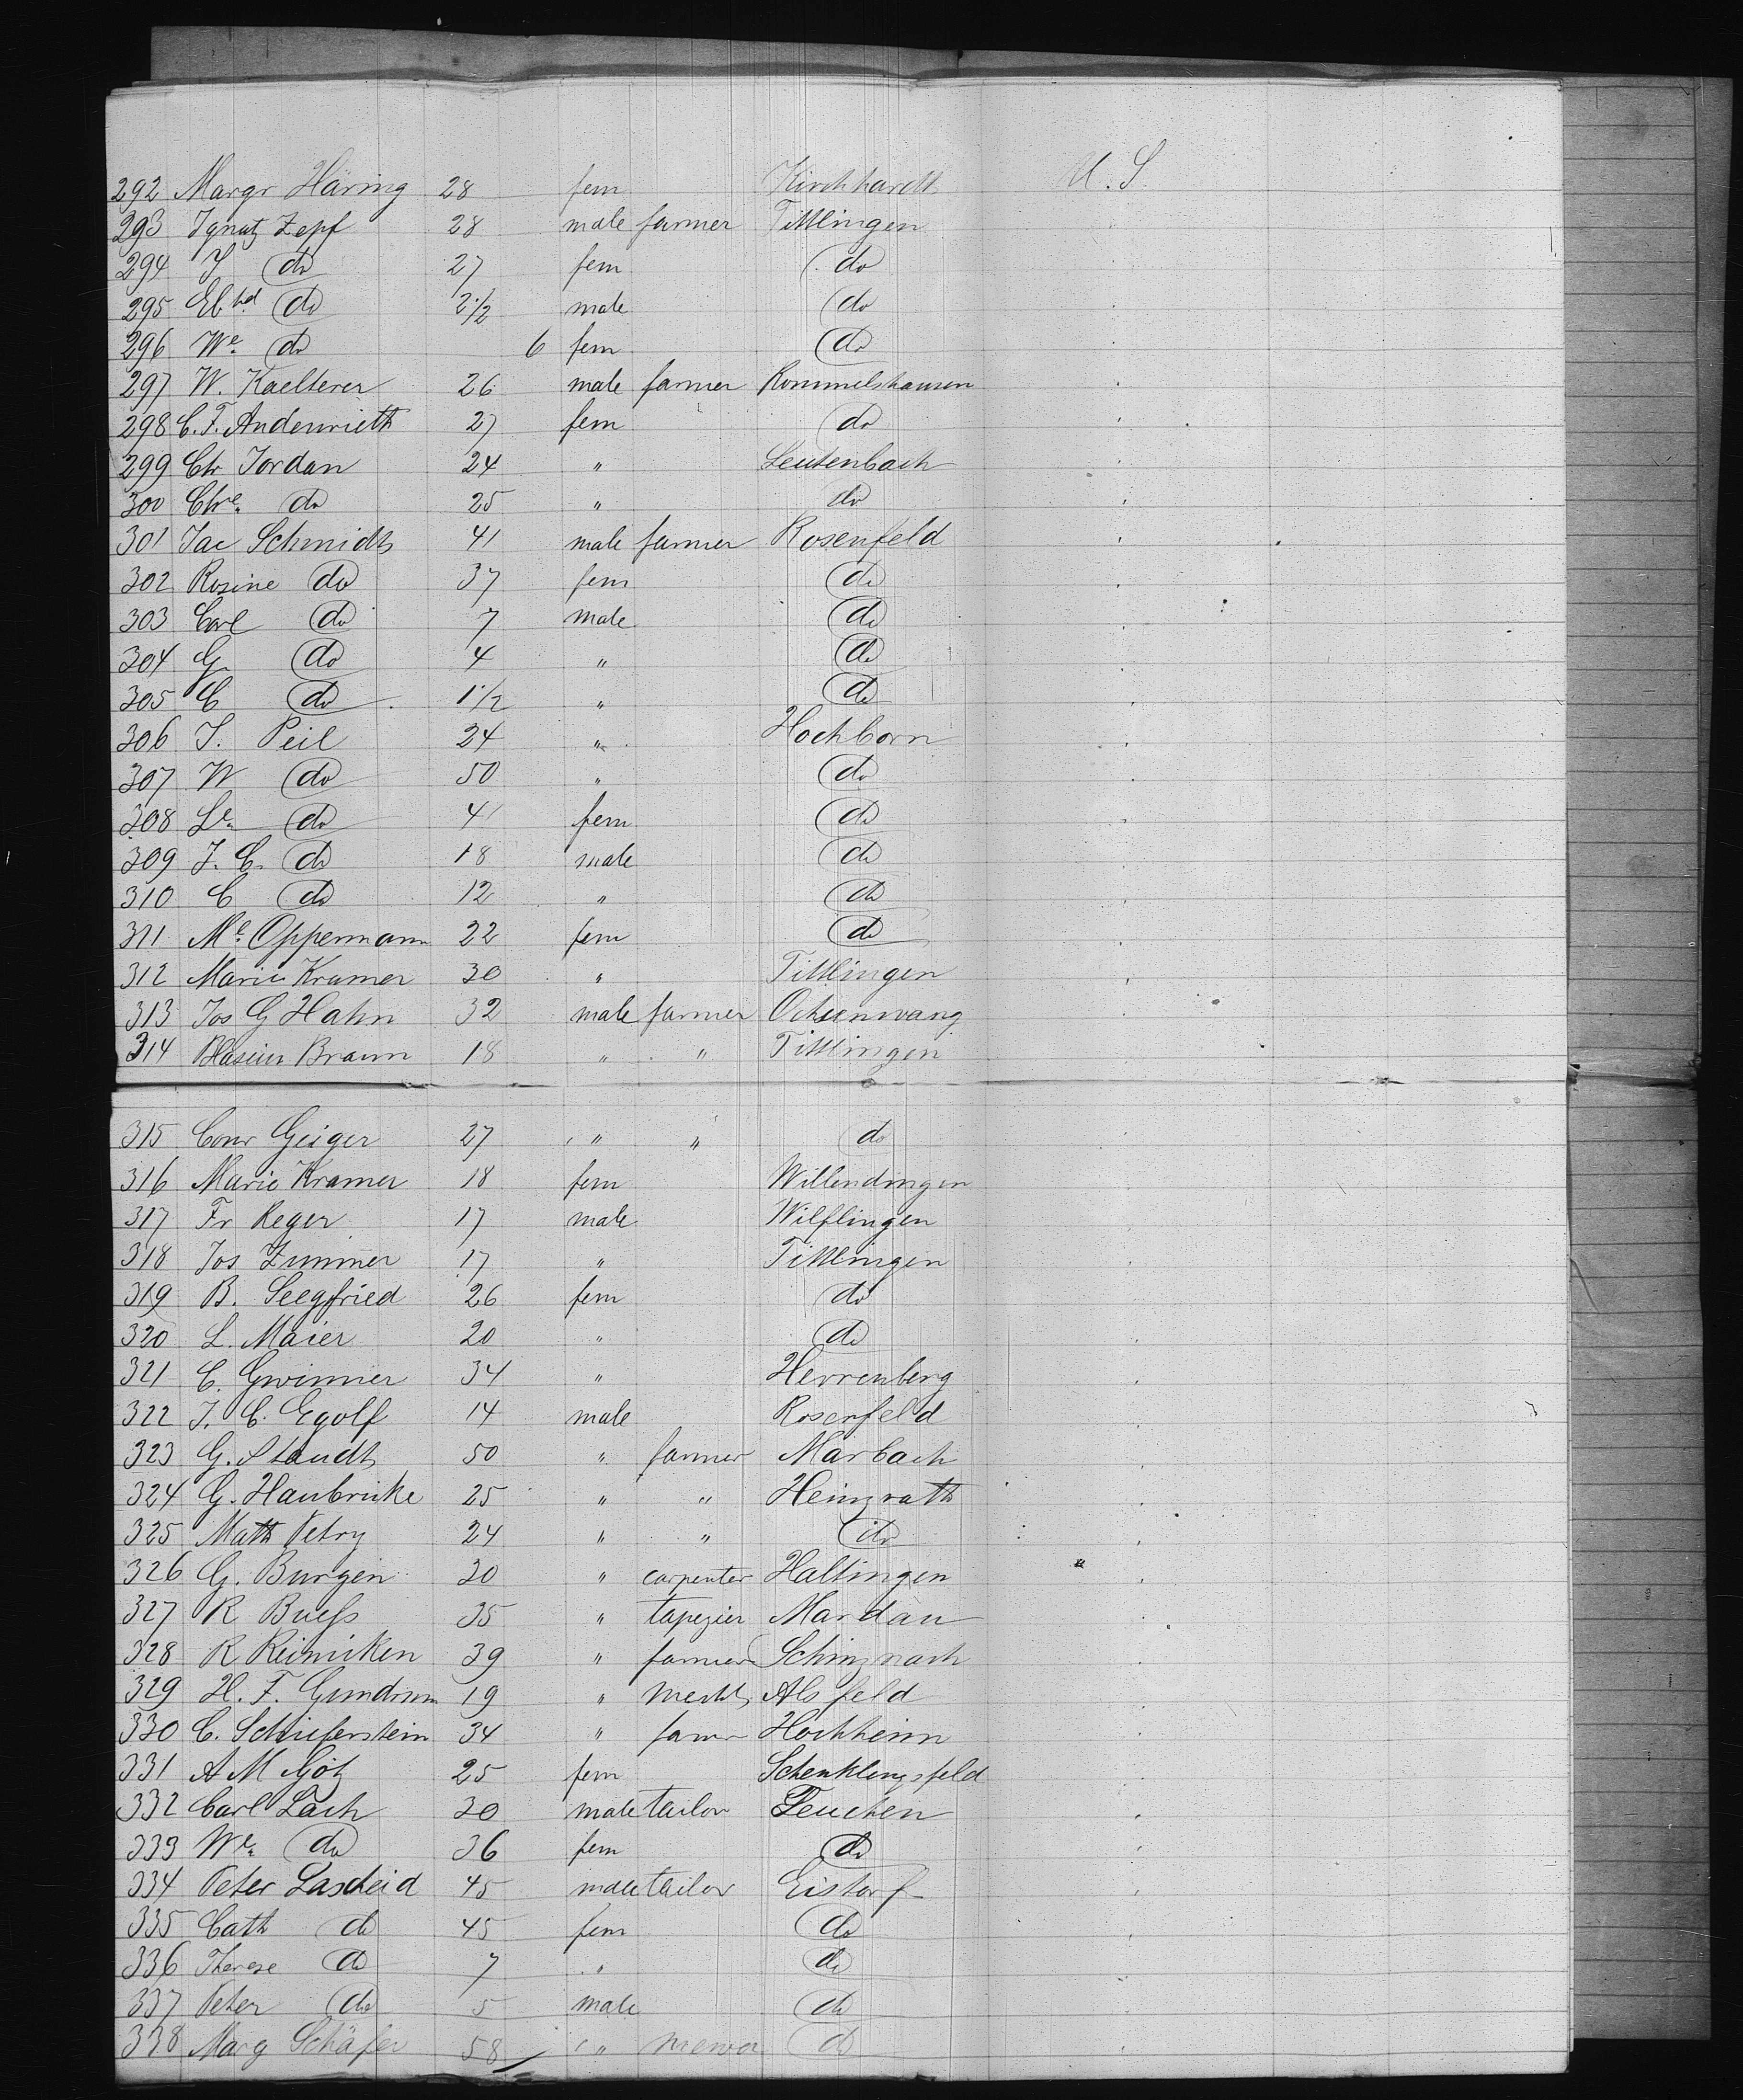 292 Margr Häring 28 fem Kirchhardt U. S.
293 Ignatz Zepf 28 male farmer Tittlingen
294 J do 27 fem do
295 Ebhd do 2 1/2 male do
296 We do 6 fem do
297 W. Kaelterer 26 male farmer Rommelshausen
298 C. F. Andenrieth 27 fem do
299 Chr Jordan 24 " Leutenbach
300 Chre do 25 " do
301 Jac Schmidt 41 male farmer Rosenfeld
302 Rosine do 37 fem do
303 Carl do 7 male do
304 G do 4 " do
305 C do 1 1/2 " do
306 J. Peil 24 " Hochborn
307 W do 50 " do
308 Le do 41 fem do
309 J. C. do 18 male do
310 C do 12 " do
311 Me Oppermann 22 fem do
312 Marie Kramer 30 " Tittlingen
313 Jos G Hahn 32 male farmer Ochsenwang
314 Blasius Braun 18 " " Tittlingen
315 Conr Geiger 27 " " do
316 Marie Kramer 18 fem Willendingen
317 Fr Reger 17 male Wilflingen
318 Jos Zimmer 17 " Tittlingen
319 B. Seegfried 26 fem do
320 L. Maier 20 " do
321 C. Gwinner 34 " Herrenberg
322 J. C. Egolf 14 male Rosenfeld
323 G. Staudt 50 " farmer Marbach
324 G. Haubricke 25 " " Heinzrath
325 Math Petry 24 " " do
326 G. Burgin 30 " carpenter Haltingen
327 R Buess 35 " tapezier Mardau
328 R Reiniken 39 " farmer Schinznach
329 H. F. Gundrum 19 " mercht Alsfeld
330 C. Schieferstein 34 " farmr Hochheim
331 A M Götz 25 fem Schenklengsfeld
332 Carl Lach 30 male tailor Teuchen
333 We do 36 fem do
334 Peter Lascheid 45 male tailor Eistorf
335 Cath do 45 fem do
336 Therese do 7 " do
337 Peter do 5 male do
338 Marg Schäfer 58 " do